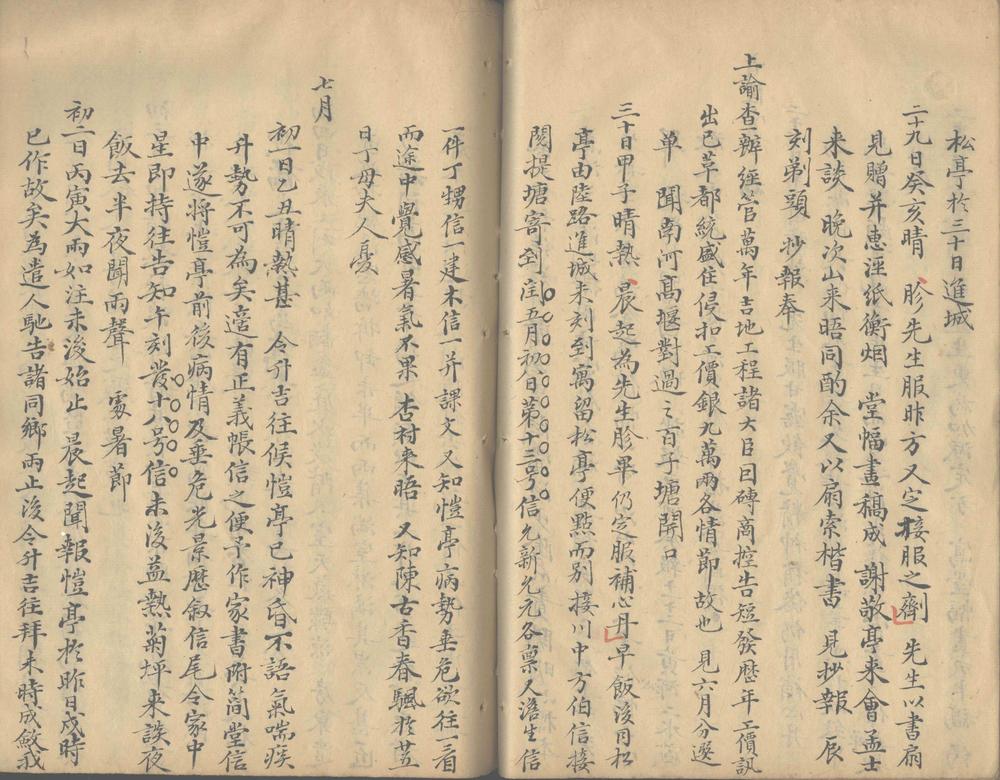 松亭於三十日進城
二十九日癸亥晴　胗先生服昨方又定接服之劑　先生以書扇
見贈并惠涇紙衡烟　堂幅畫稿成　謝敬亭来會　孟士
来談　晚次山来晤同酌余又以扇索楷書　見抄報　辰
刻剃頭　抄報奉
上諭查辦經管萬年吉地工程諸大臣因磚商控告短發歷年工價訊
出已革都統盛住侵扣工價銀九萬兩各情節故也　見六月分邸
单　聞南河高堰對過之百子塘開口
三十日甲子晴熱　晨起為先生胗畢仍定服補心丹　早飯後同松
亭由陸路進城未刻到寓留松亭便點而別接川中方伯信接
閱提塘寄到閏五月初八日第十三号信允新允元各禀又澹生信
一件丁甥信一建木信一并課文又知愷亭病勢垂危欲往一看
而途中覺感暑氣不果　杏村来晤　又知陳古香春颿於
日丁母夫人憂
七月
初一日乙丑晴熱甚　令升吉往候愷亭已神昏不語氣喘痰
升勢不可為矣適有正義帳信之便予作家書附簡堂信
中遂將愷亭前後病情及垂危光景歷叙信尾令家中
星即持往告知午刻發十八号信未後益熱菊坪来談夜
飯去半夜聞雨聲　處暑節
初二日丙寅大雨如注未後始止　晨起聞報愷亭於昨日戌時
已作故矣為遣人馳告諸同鄉雨止後令升吉往拜未時成斂我